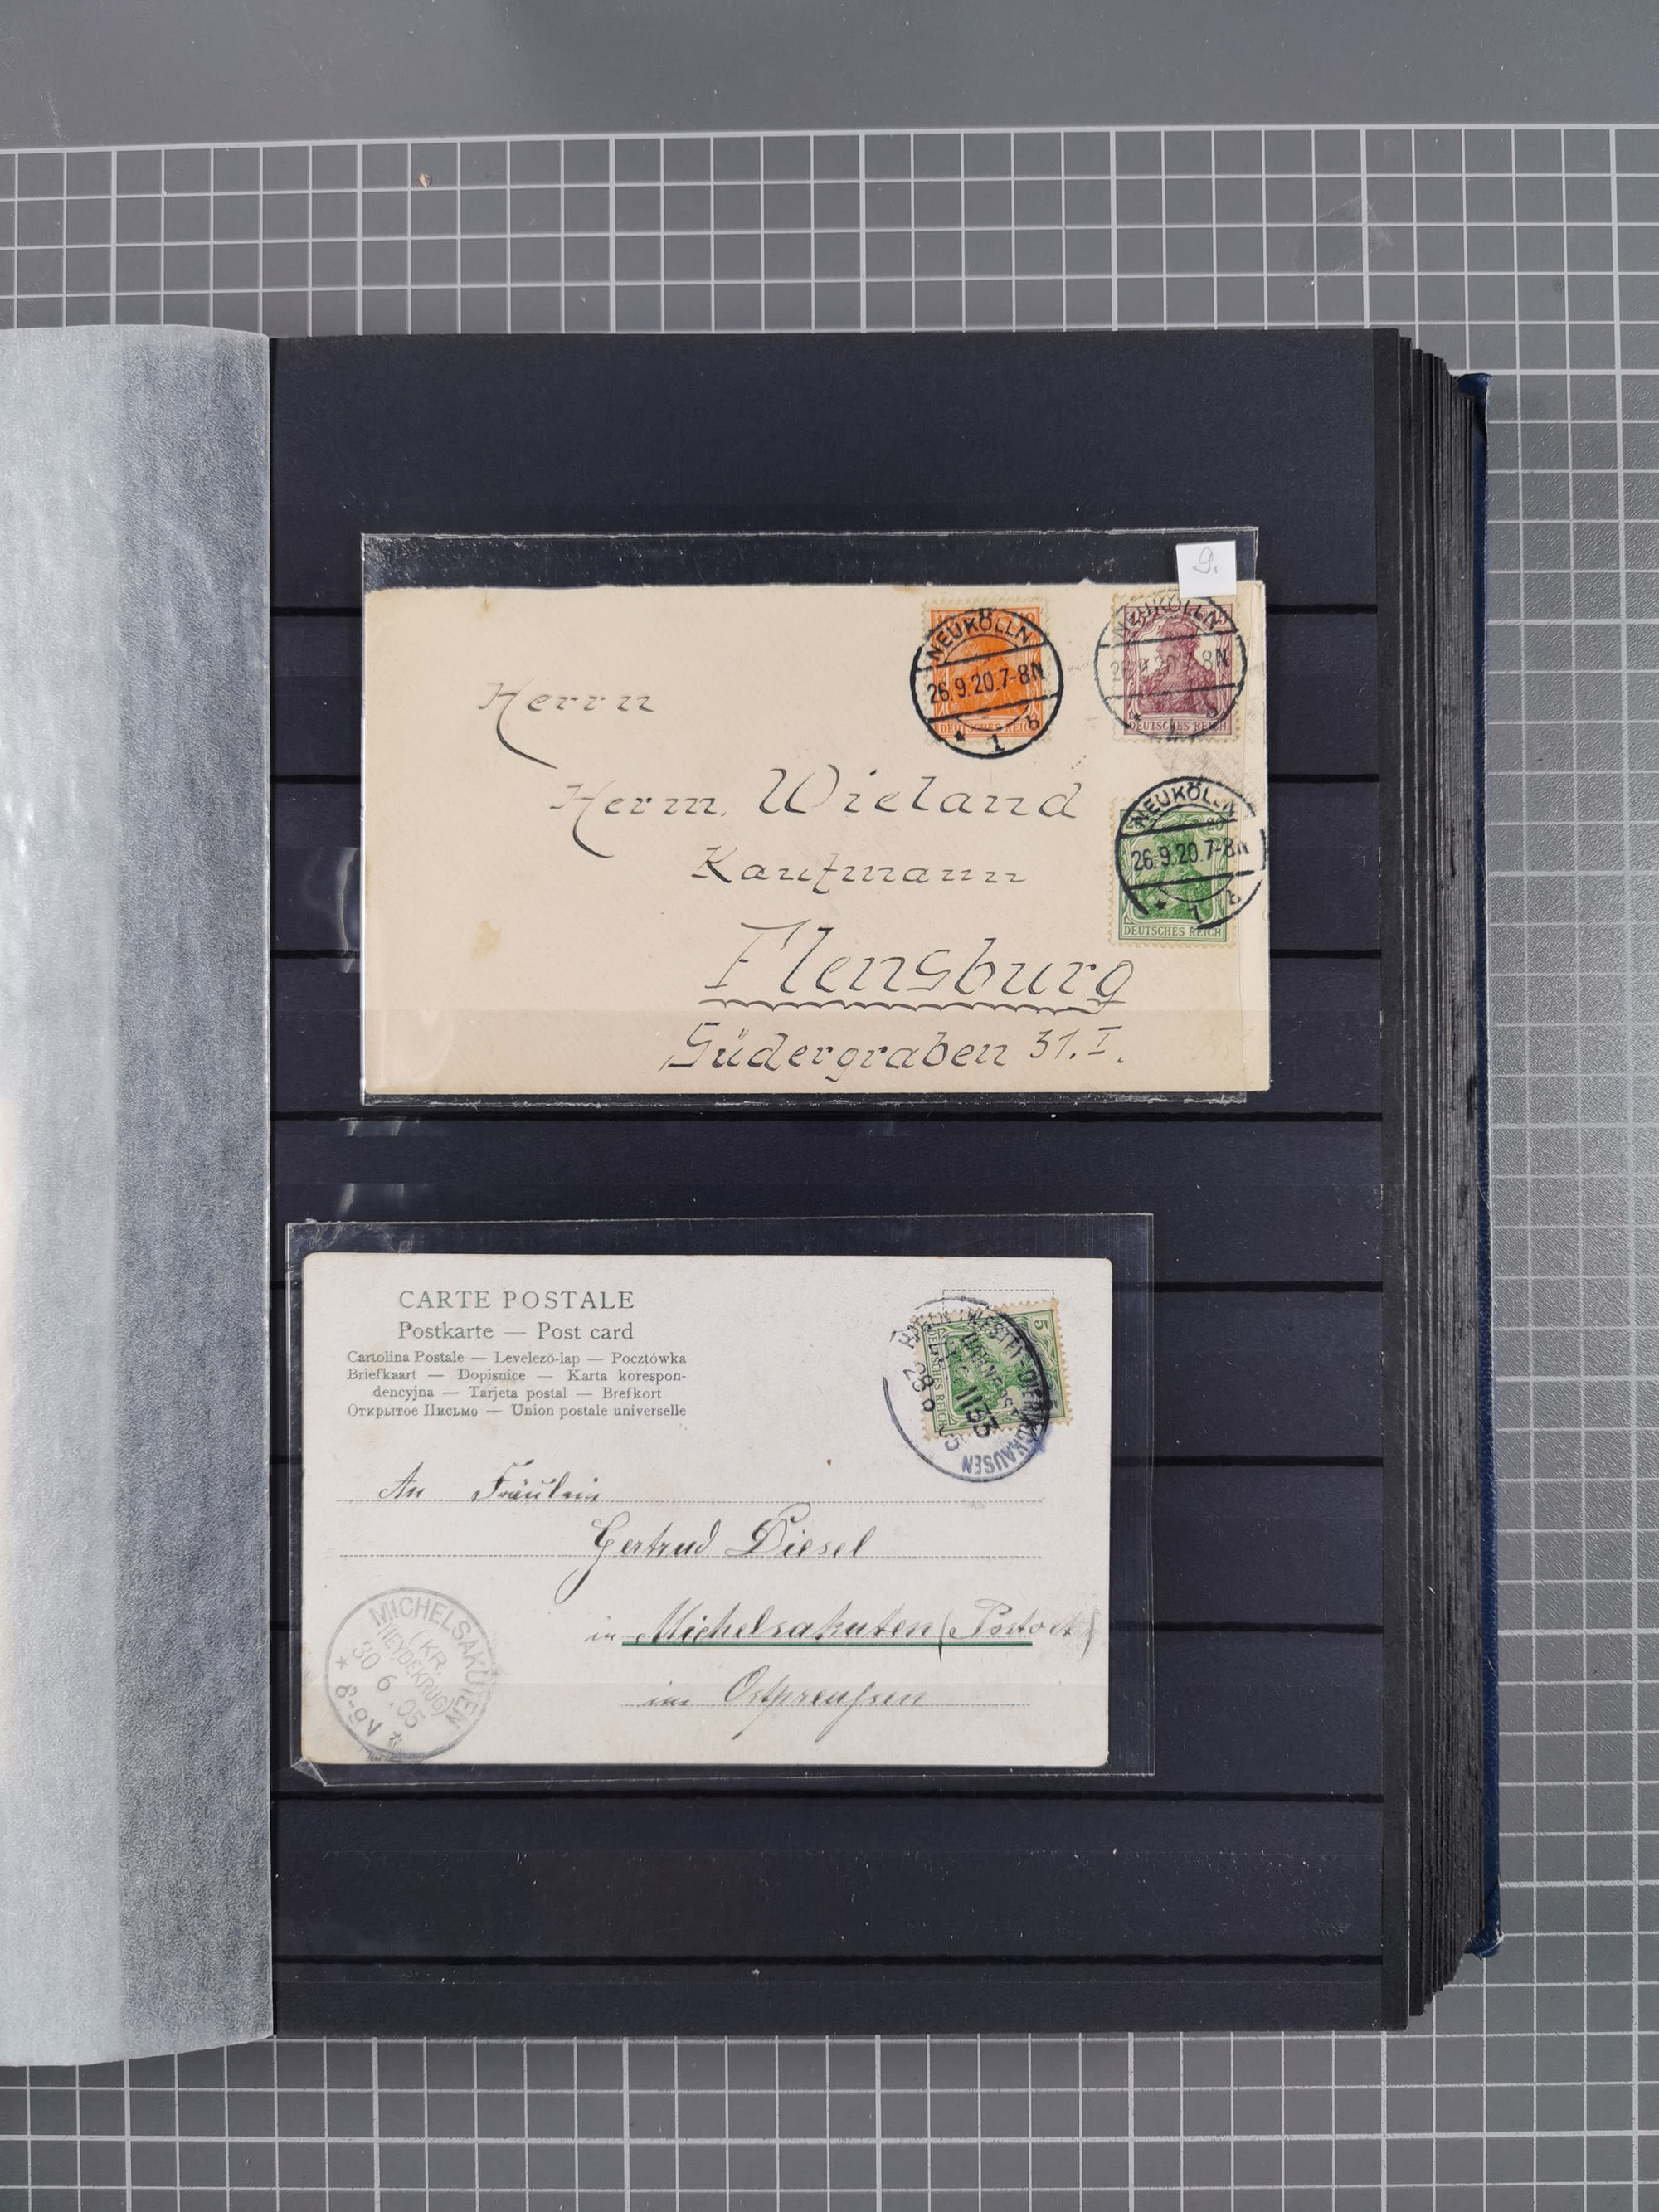 9.
NEUKÖLLN
26.9.20.7-8N
* 1 b
10
DEUTSCHES REICH
NEUKÖLLN
26.9.20.7-8N
DEUTSCHES REICH
NEUKÖLLN
26.9.20.7-8N
* 1
20
DEUTSCHES REICH
Herrn
Herm. Wieland
Kaufmann
Flensburg
Südergraben 31.I.
CARTE POSTALE
Postkarte — Post card
Cartolina Postale — Levelező-lap — Pocztówka
Briefkaart — Dopisnice — Karta korespon-
dencyjna — Tarjeta postal — Brefkort
Открытое Письмо — Union postale universelle
5
DEUTSCHES REICH
1133
An Fräulein
Gertrud Diesel
in Michelsakuten (Postort)
in Ostpreußen
MICHELSAKUTEN
(KR.
HEYDEKRUG)
30 6 .05
* 8-9V *